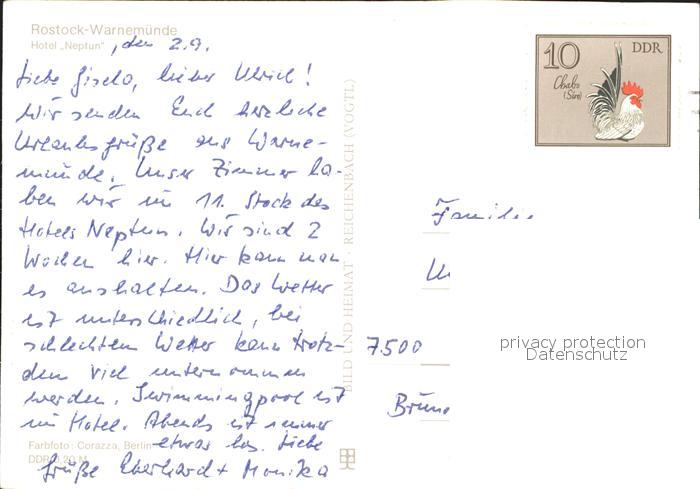 Rostock-Warnemünde
Hotel „Neptun", den 2.9.
Liebe Gisela, lieber Ulrich!
Wir senden Euch herzliche
Urlaubsgrüße aus Warne-
münde. Unser Zimmer ha-
ben wir im 11. Stock des
Hotels Neptun. Wir sind 2
Wochen hier. Hier kann man
es aushalten. Das Wetter
ist unterschiedlich, bei
schlechtem Wetter kann trotz-
dem viel unternommen
werden. Swimmingpool ist
im Hotel. Abends ist immer
etwas los. Liebe
Grüße Eberhard + Monika
Farbfoto: Corazza, Berlin
DDR 0,20 M
BILD UND HEIMAT · REICHENBACH (VOGTL)
10 DDR
Chabo
(Sire)
Familie
7500
privacy protection
Datenschutz